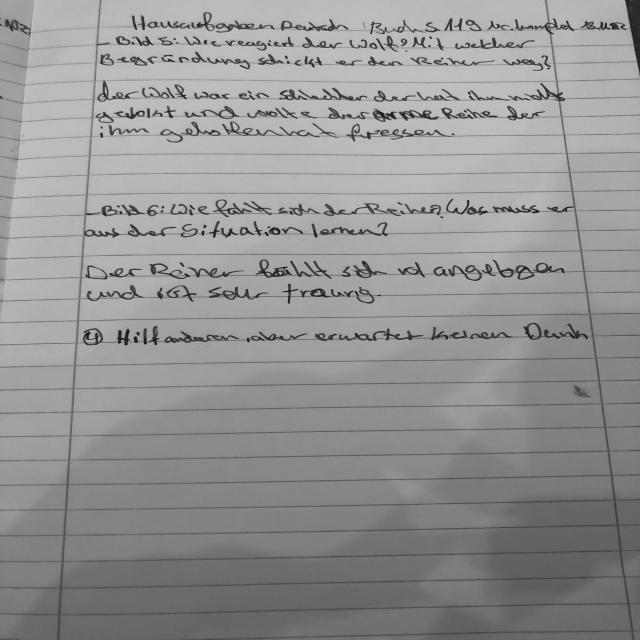 Hausaufgaben Deutsch Buch S 119 Nr. komplet
- Bild 5: Wie reagiert der Wolf? Mit welcher
Begründung schickt er den Reiher weg?
der Wolf war ein schlechter der hat ihm nichts
gelohnt und wollte der arme Reihe der
ihm geholfen hat fressen.
- Bild 6: Wie fühlt sich der Reiher? Was muss er
aus der Situation lernen?
Der Reiher fühlt sich angelogen
und ist sehr traurig.
④ Hilf anderen, aber erwartet keinen Dank